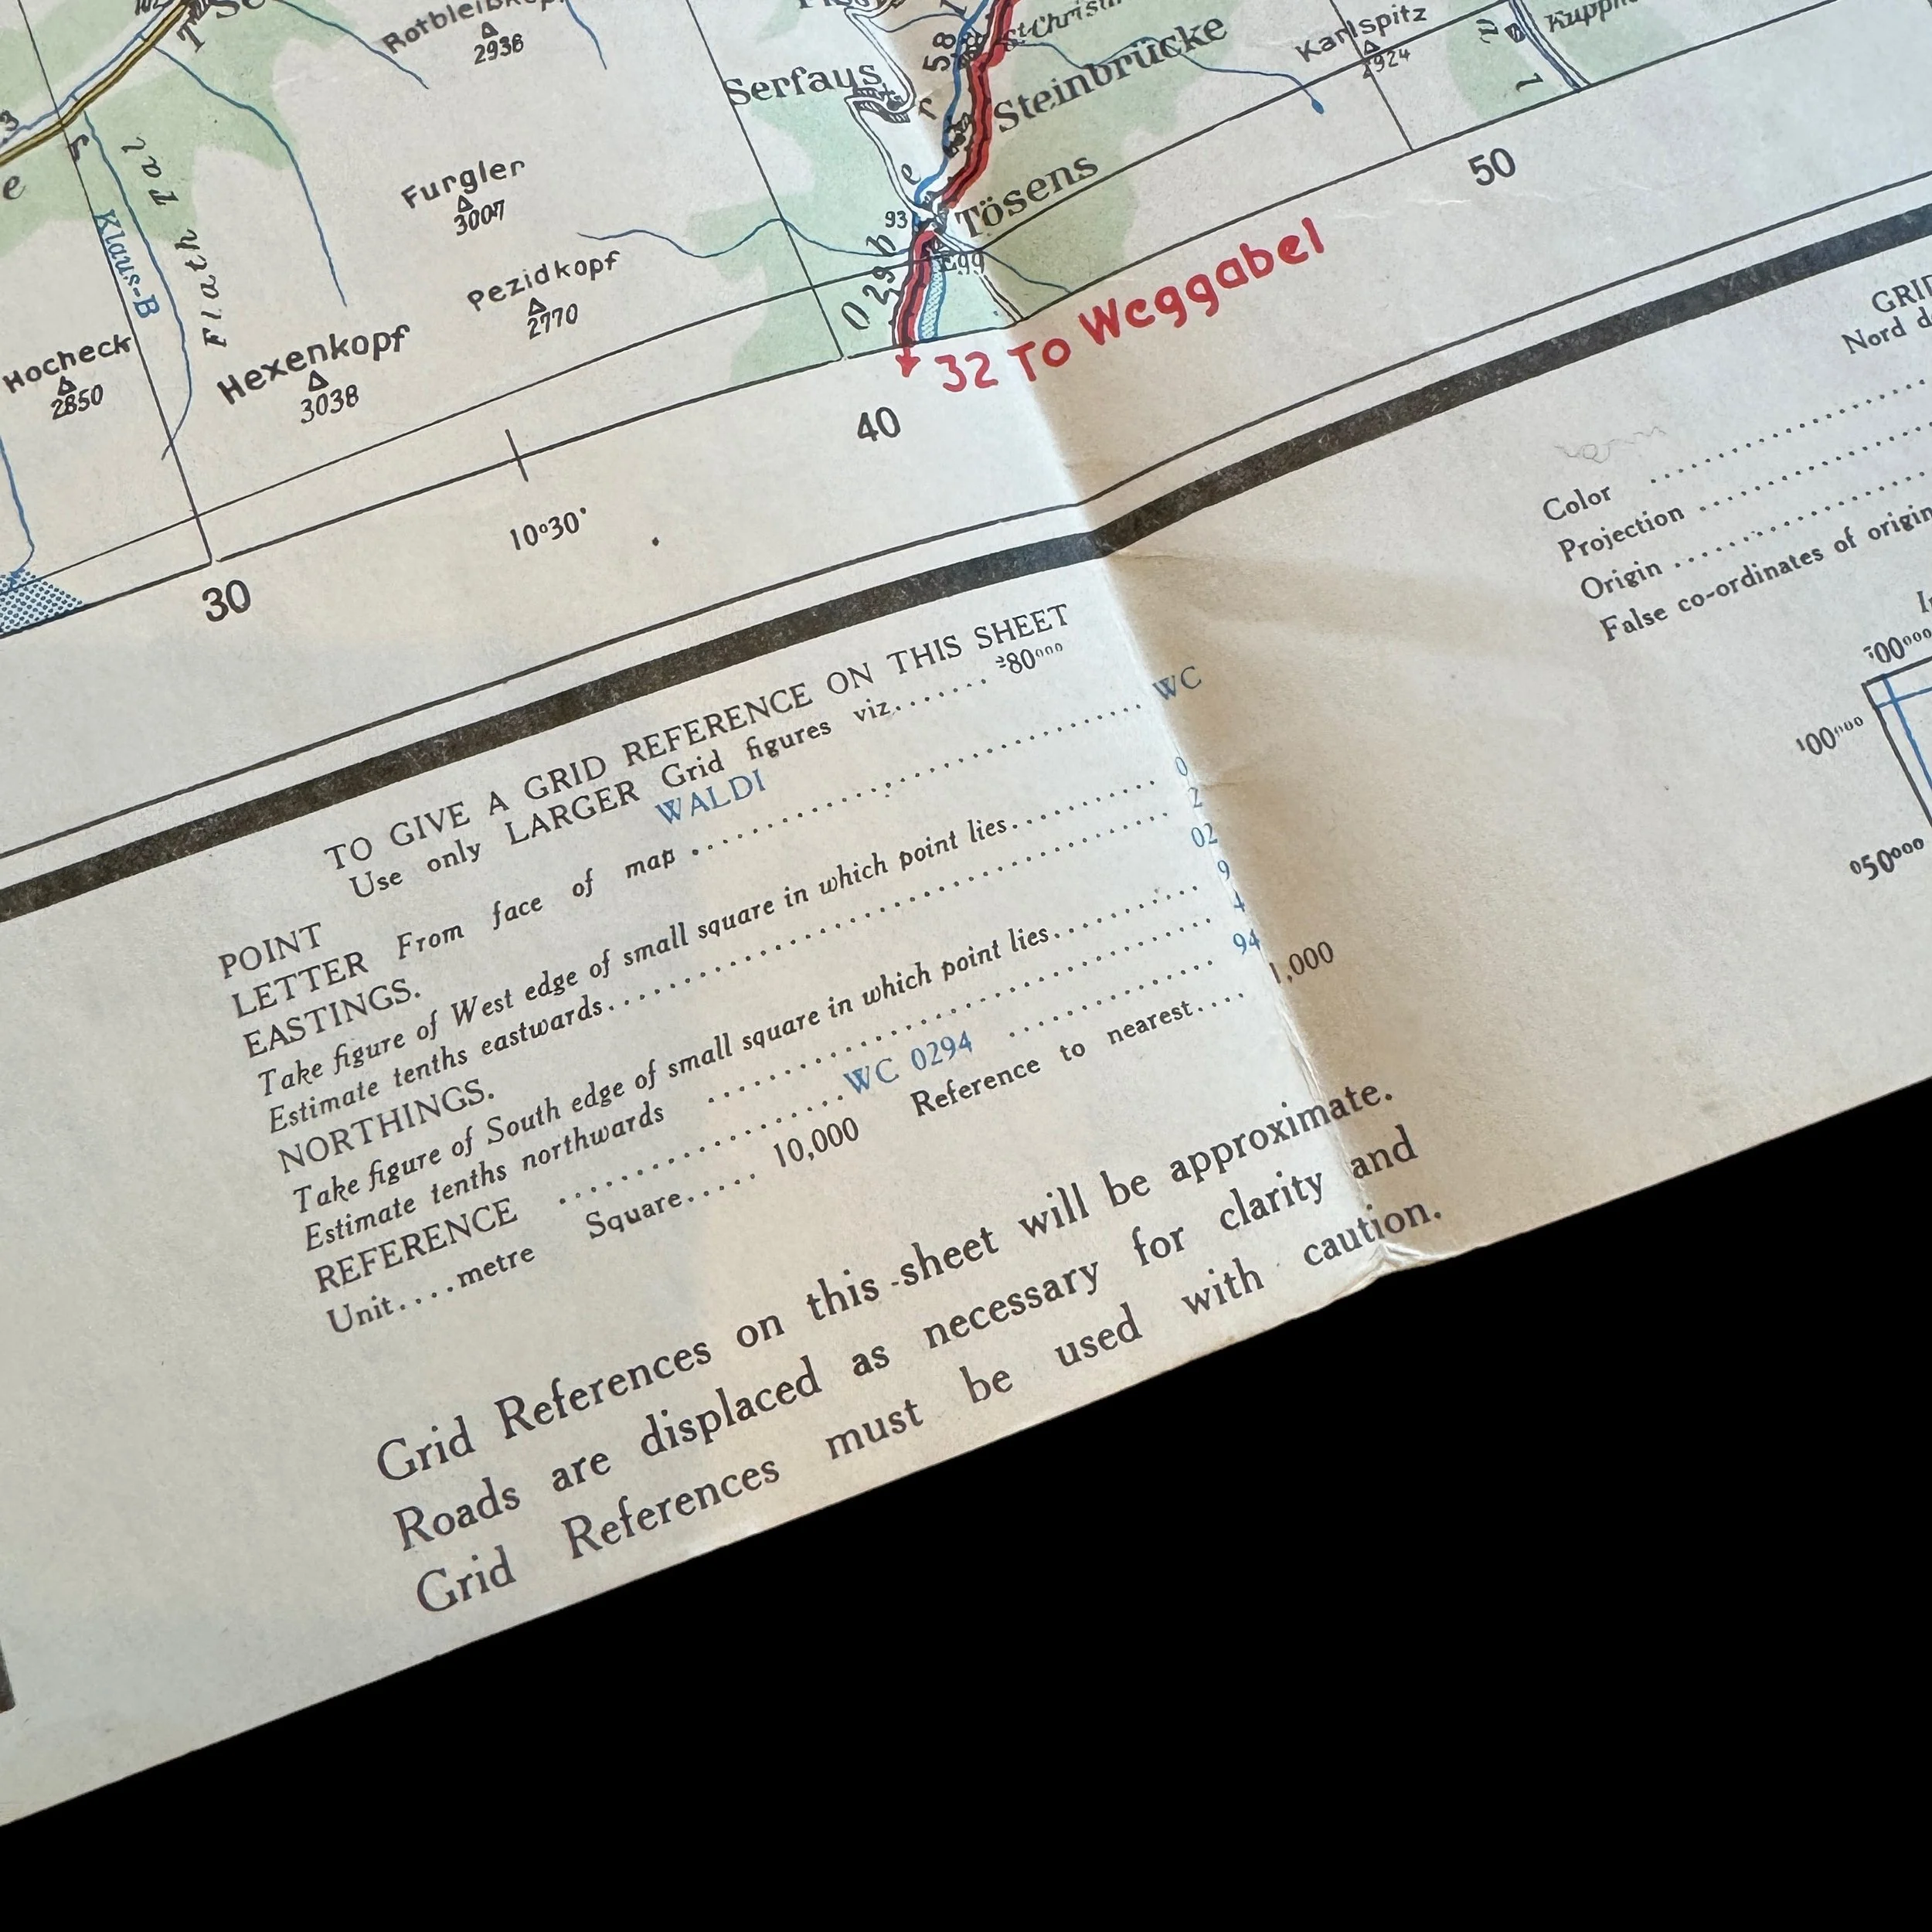 2936
58
St Christ
Karlspitz
2924
Serfaus
Steinbrücke
3
Tal
Furgler
3007
50
e
Klaus-B
Flath
93
Tösens
Pezidkopf
2770
29
E99
Hocheck
2850
Hexenkopf
3038
32 TO Weggabel
40
10°30'
30
Nord d
Color
Projection
Origin
False co-ordinates of origin
TO GIVE A GRID REFERENCE ON THIS SHEET
Use only LARGER Grid figures viz....... ²80⁰⁰⁰
POINT WALDI
LETTER From face of map WC
EASTINGS.
Take figure of West edge of small square in which point lies 0
Estimate tenths eastwards 2
02
NORTHINGS.
Take figure of South edge of small square in which point lies 9
Estimate tenths northwards 4
94
REFERENCE WC 0294
Unit....metre Square..... 10,000 Reference to nearest.... 1,000
Grid References on this sheet will be approximate.
Roads are displaced as necessary for clarity and
Grid References must be used with caution.
⁰50⁰⁰⁰